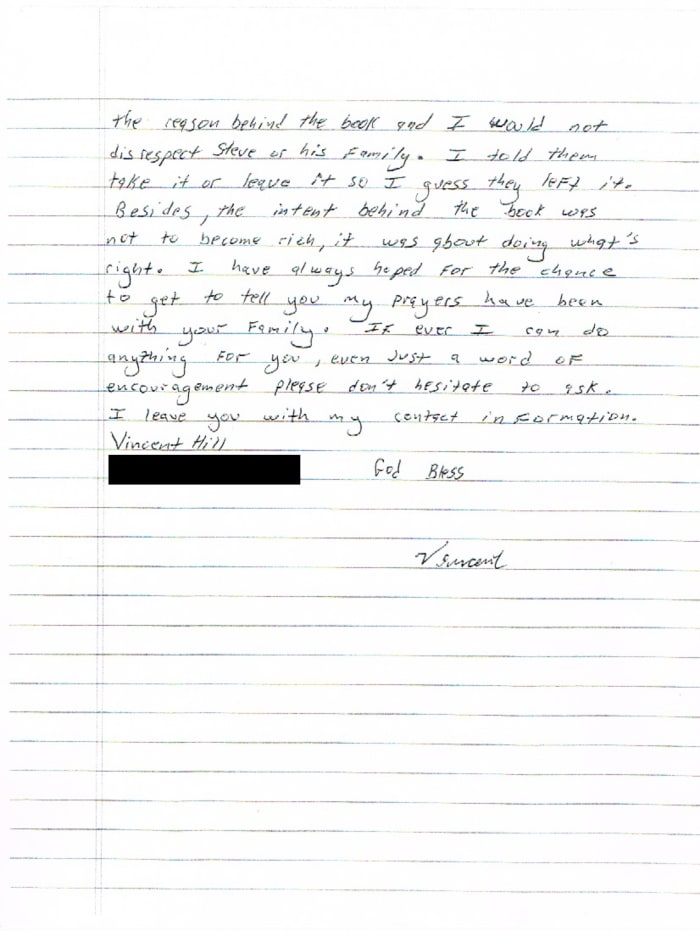 the reason behind the book and I would not
disrespect Steve or his Family. I told them
take it or leave it so I guess they left it.
Besides, the intent behind the book was
not to become rich, it was about doing what's
right. I have always hoped for the chance
to get to tell you my prayers have been
with your Family. If ever I can do
anything for you, even just a word of
encouragement please don't hesitate to ask.
I leave you with my contact information.
Vincent Hill
God Bless
Vincent